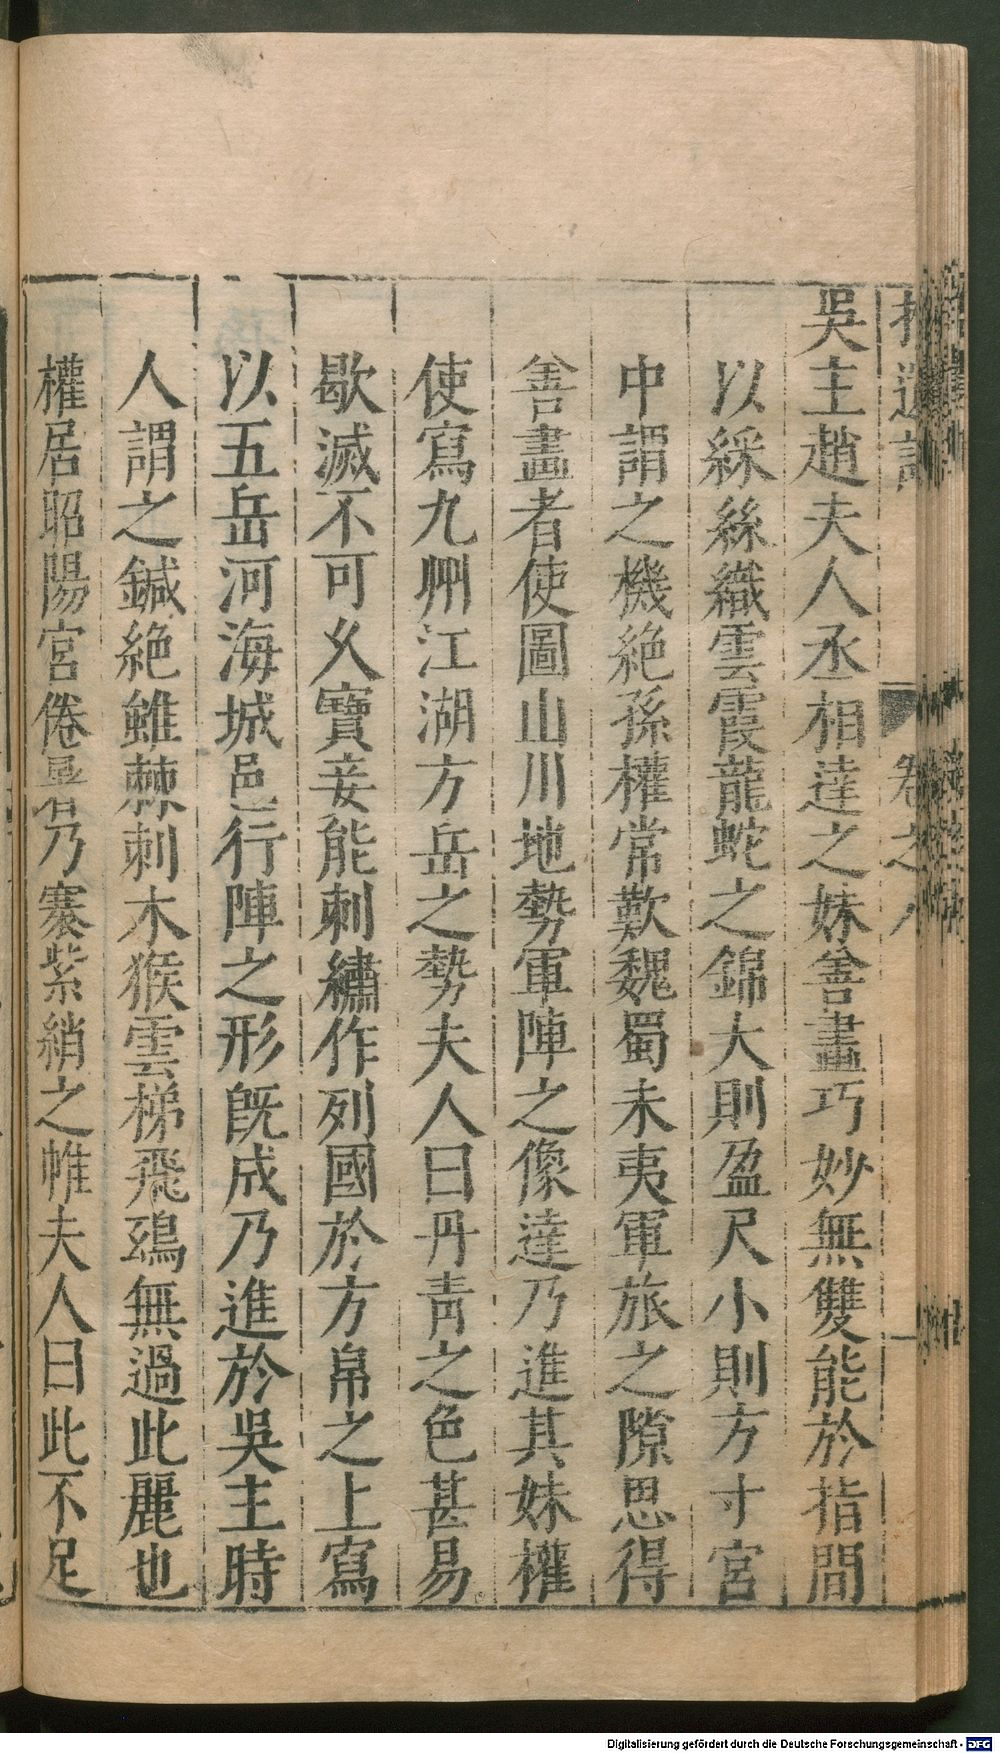 拾遺記 卷之八
吳主趙夫人丞相達之妹善畫巧妙無雙能於指間
以綵絲織雲霞龍蛇之錦大則盈尺小則方寸宮
中謂之機絶孫權常歎魏蜀未夷軍旅之隙思得
善畫者使圖山川地勢軍陣之像達乃進其妹權
使寫九州江湖方岳之勢夫人曰丹青之色甚易
歇滅不可久寶妾能刺繡作列國於方帛之上寫
以五岳河海城邑行陣之形旣成乃進於吳主時
人謂之鍼絶雖棘刺木猴雲梯飛鵄無過此麗也
權居昭陽宮倦暑乃褰紫綃之帷夫人曰此不足
Digitalisierung gefördert durch die Deutsche Forschungsgemeinschaft - DFG